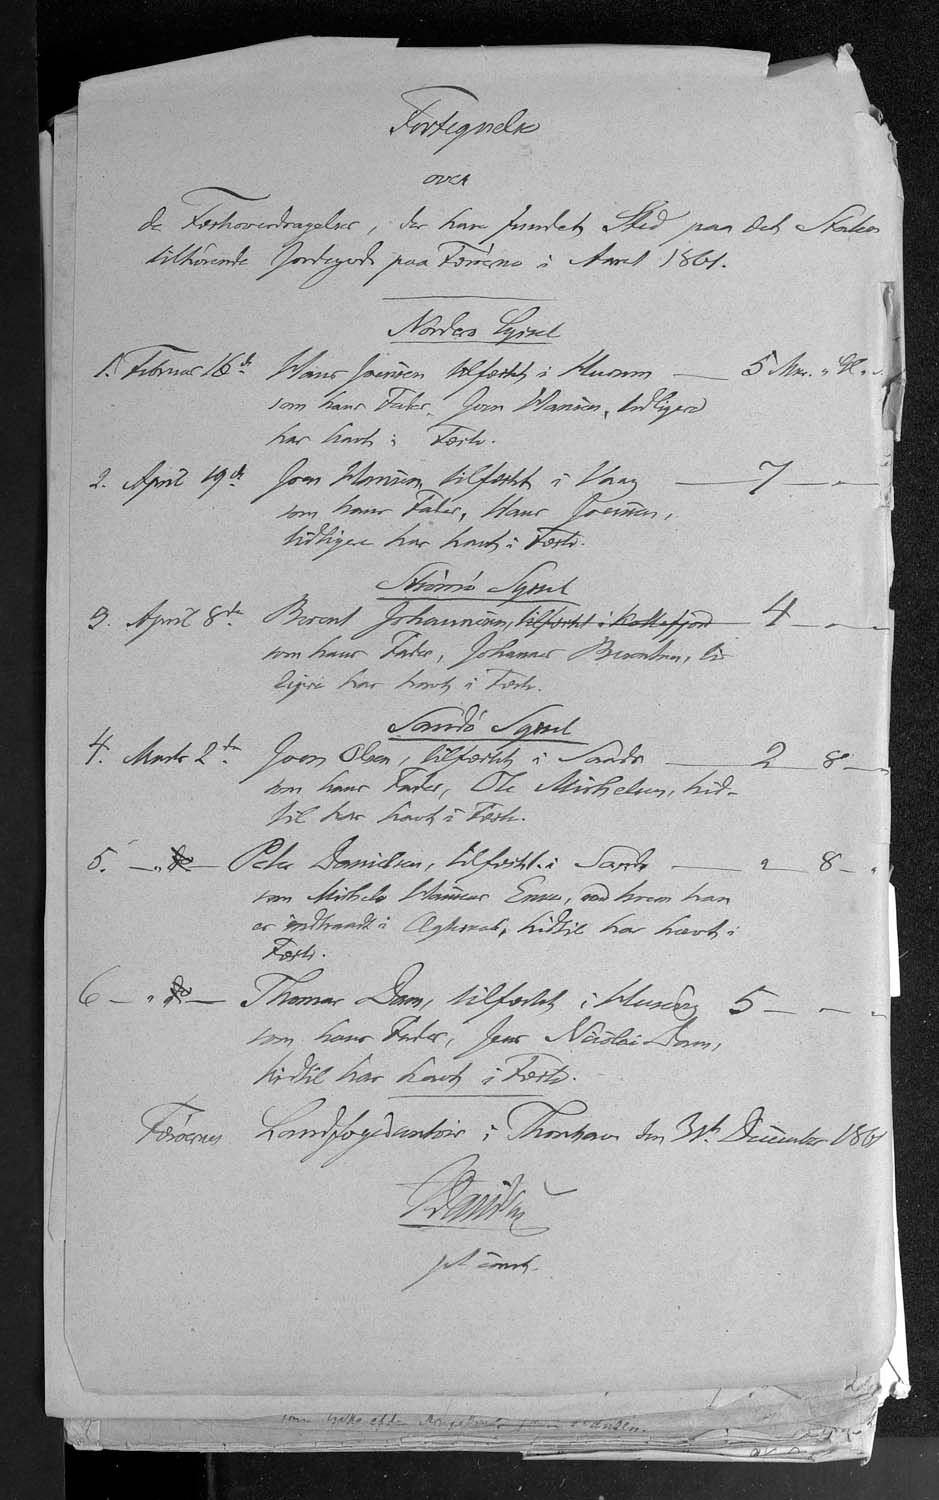 Fortegnelse
over
de Fæsteoverdragelser, der have fundet Sted paa det Staten
tilhørende Jordegods paa Færøerne i Aaret 1861.
Norderø Syssel
1. Februar 16de Hans Joensen tilfæstet i Husum — 5 Mrr. " Gl. " S.
som hans Fader, Joen Hansen, tidligere
har havt i Fæste.
2. April 19de Joen Hansen, tilfæstet i Vaag — 7 — " —
som hans Fader, Hans Joensen,
tidligere har havt i Fæste.
Strømø Syssel
3. April 8de Berent Johannesen, tilfæstet i Kollefjord — 4 — " —
som hans Fader, Johannes Berentsen, tid
ligere har havt i Fæste.
Sandø Syssel
4. Marts 2den Joen Olsen, tilfæstet i Sande — 2 — 8 —
som hans Fader, Ole Michelsen, hid-
til har havt i Fæste.
5. — " — Peter Danielsen, tilfæstet i Sande — 2 — 8 — "
som Michels Hansens Enke, med hvem han
er indtraadt i Ægteskab, hidtil har havt i
Fæste.
6 — " — Thomas Dam, tilfæstet i Husevig 5 — " —
som hans Fader, Jens Nicolai Dam,
hidtil har havt i Fæste.
Færøernes Landfogedcontoir i Thorshavn den 31te December 1861
HDanielsen
const.